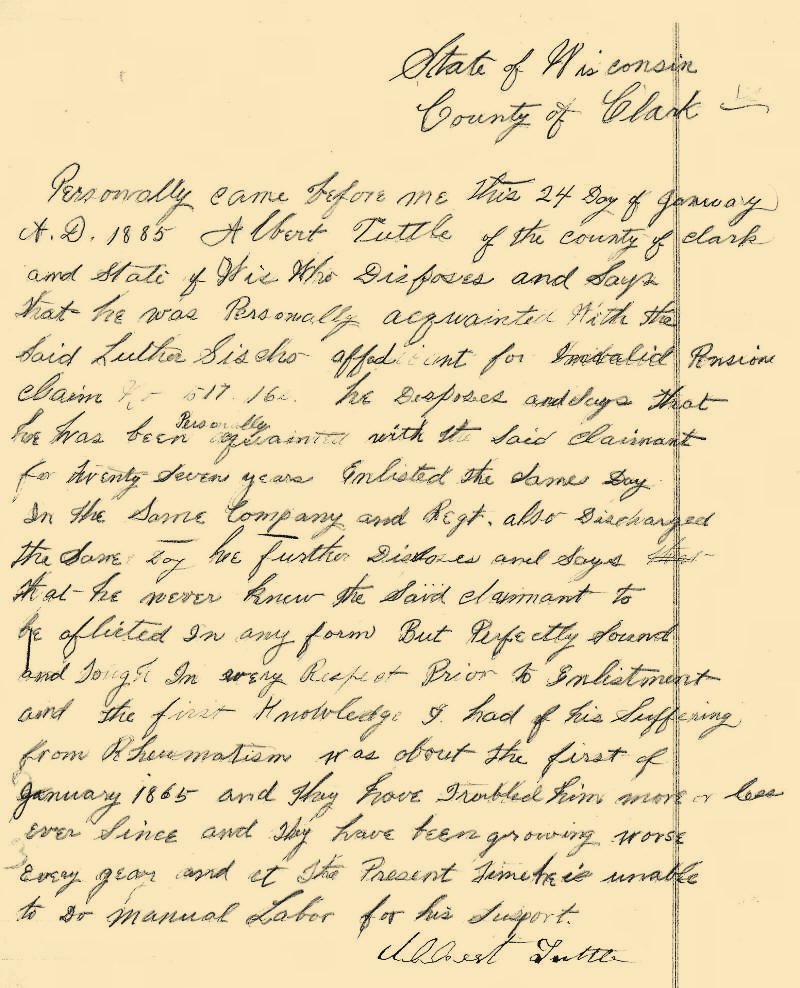 State of Wisconsin
County of Clark
Personally came before me this 24 Day of January
A. D. 1885 Albert Tuttle of the county of clark
and State of Wis Who Disposes and Says
that he was Personally acquainted With the
Said Luther Sischo for Invalid Pensione
claim No 517. he Disposes and Says that
he was been Personally acquainted with the Said Claimant
for twenty Seven years Enlisted the Same Day
In the Same Company and Regt. also Discharged
the Same Day he further Disposes and Says that
that he never knew the Said claimant to
be aflicted In any form But Perfectly Sound
and Tough In every Respect Prior to Enlistment
and the first Knowledge I had of his Suffering
from Rheumatism was about the first of
January 1865 and they have Trobled him more or less
ever Since and thy have been growing worse
every year and et the Present time he is unable
to Do manual Labor for his Suport.
Albert Tuttle